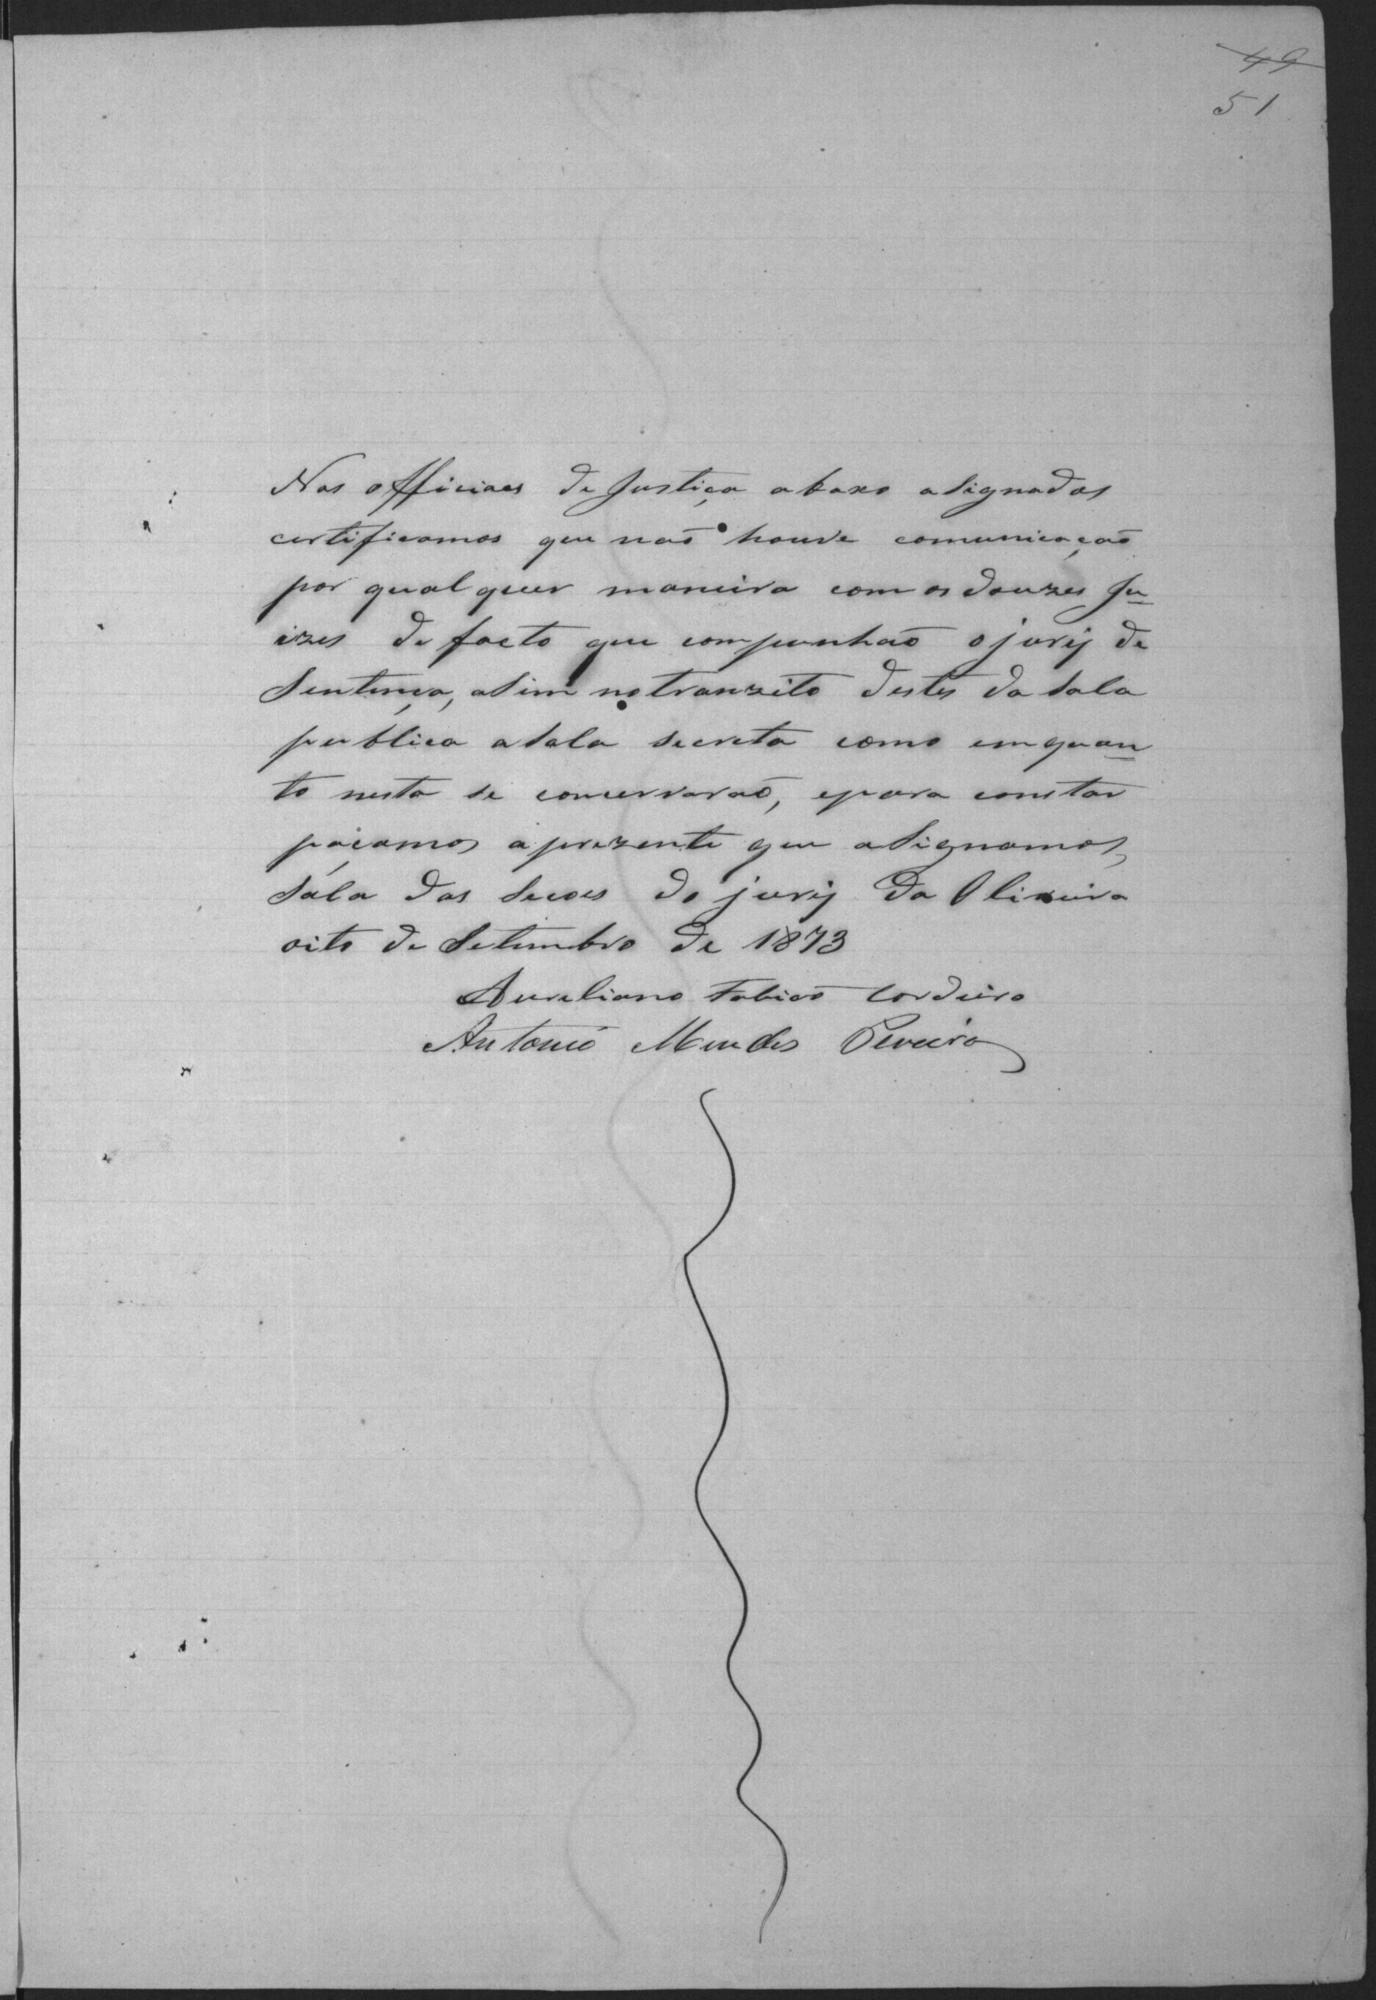 49
51
Nos officiaes de Justiça abaxo asignados
certificamos que naõ houve comunicaçaõ
por qualquer maneira com os douzes Ju
izes de facto que compunhaõ o jury de
Sentença, asim no tranzito destes da sala
publica a sala secreta como emquan
to nesta se concervaraõ, e para constar
paçamos a prezente que asignamos,
Sala das secoes do jury da Oliveira
oito de Setembro de 1873
Aureliano Fabiaõ Cordeiro
Antonio Mendes Pereira